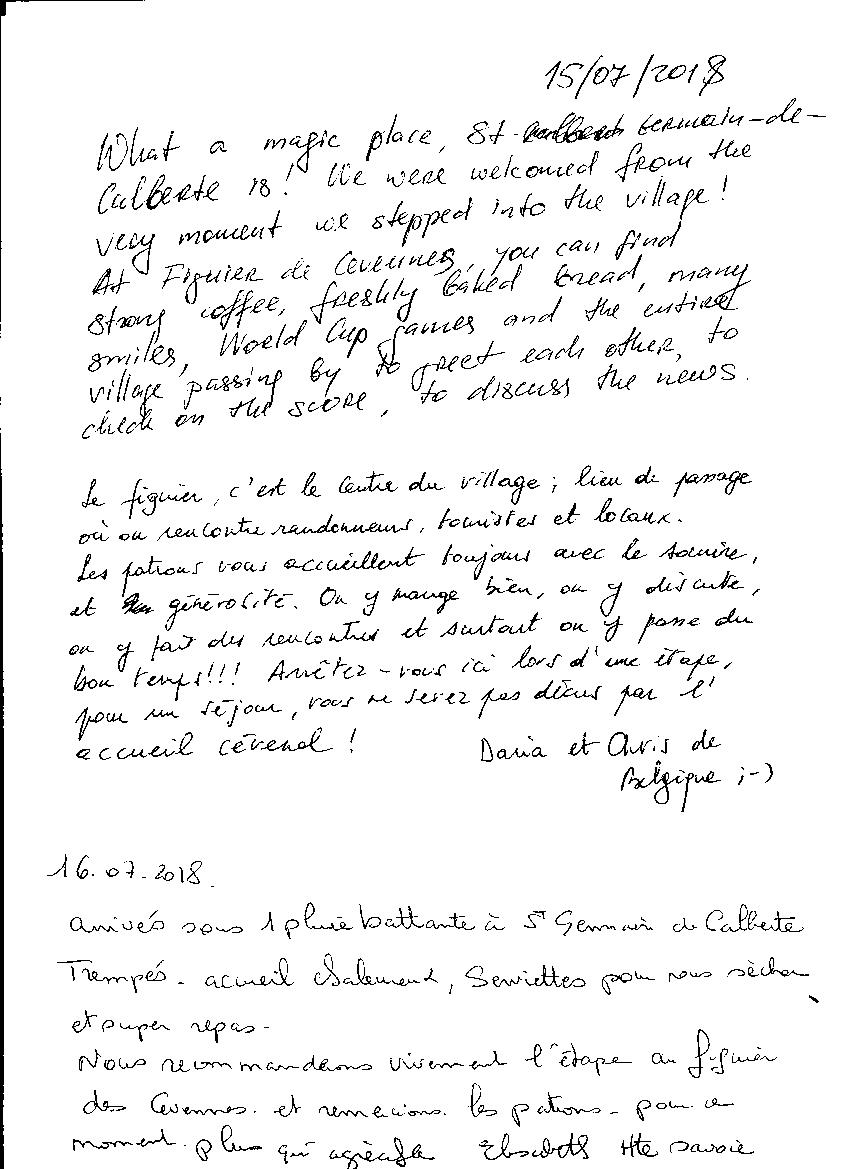 15/07/2018
What a magic place, St-Germain-de-
Calberte is! We were welcomed from the
very moment we stepped into the village!
At Figuier de Cevennes, you can find
strong coffee, freshly baked bread, many
smiles, World Cup games and the entire
village passing by to greet each other, to
check on the score, to discuss the news.
Le figuier, c'est le centre du village; lieu de passage
où on rencontre randonneurs, touristes et locaux.
Les patrons vous accueillent toujours avec le sourire,
et générosité. On y mange bien, on y discute,
on y fait des rencontres et surtout on y passe du
bon temps!!! Arrêtez-vous ici lors d'une étape,
pour un séjour, vous ne serez pas déçus par l'
accueil cévenol!
Daria et Chris de
Belgique ;-)
16.07.2018.
arrivés sous 1 pluie battante à St Germain de Calberte
Trempés. accueil, Serviettes pour nous sècher
et super repas-
Nous recommandons vivement l'étape au figuier
des Cevennes. et remercions les patrons- pour ce
moment plus qu'agréable Hte savoie